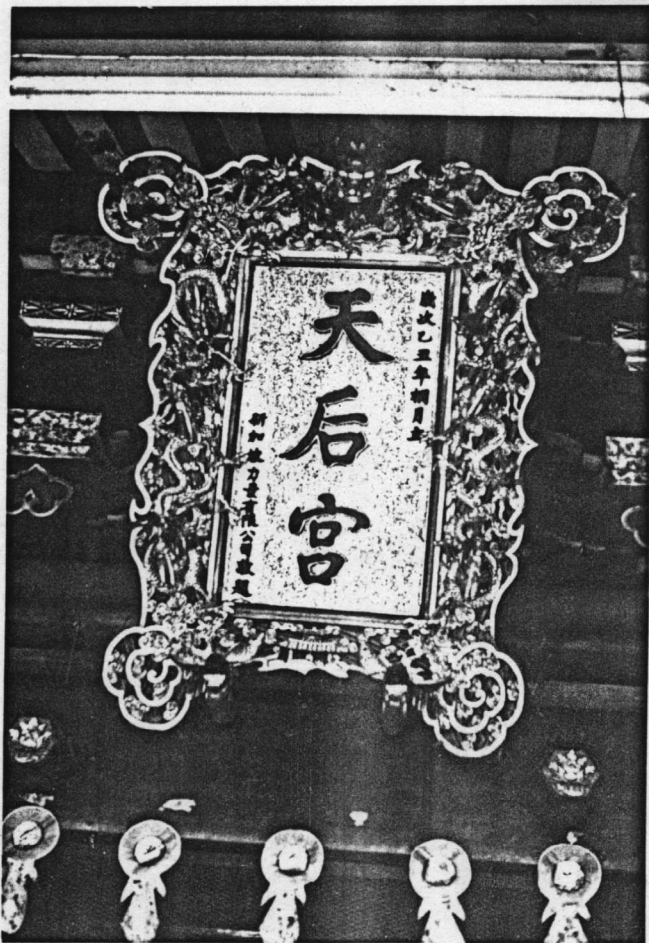 歲次乙丑年桐月立
天后宮
新加坡力有限公司敬題